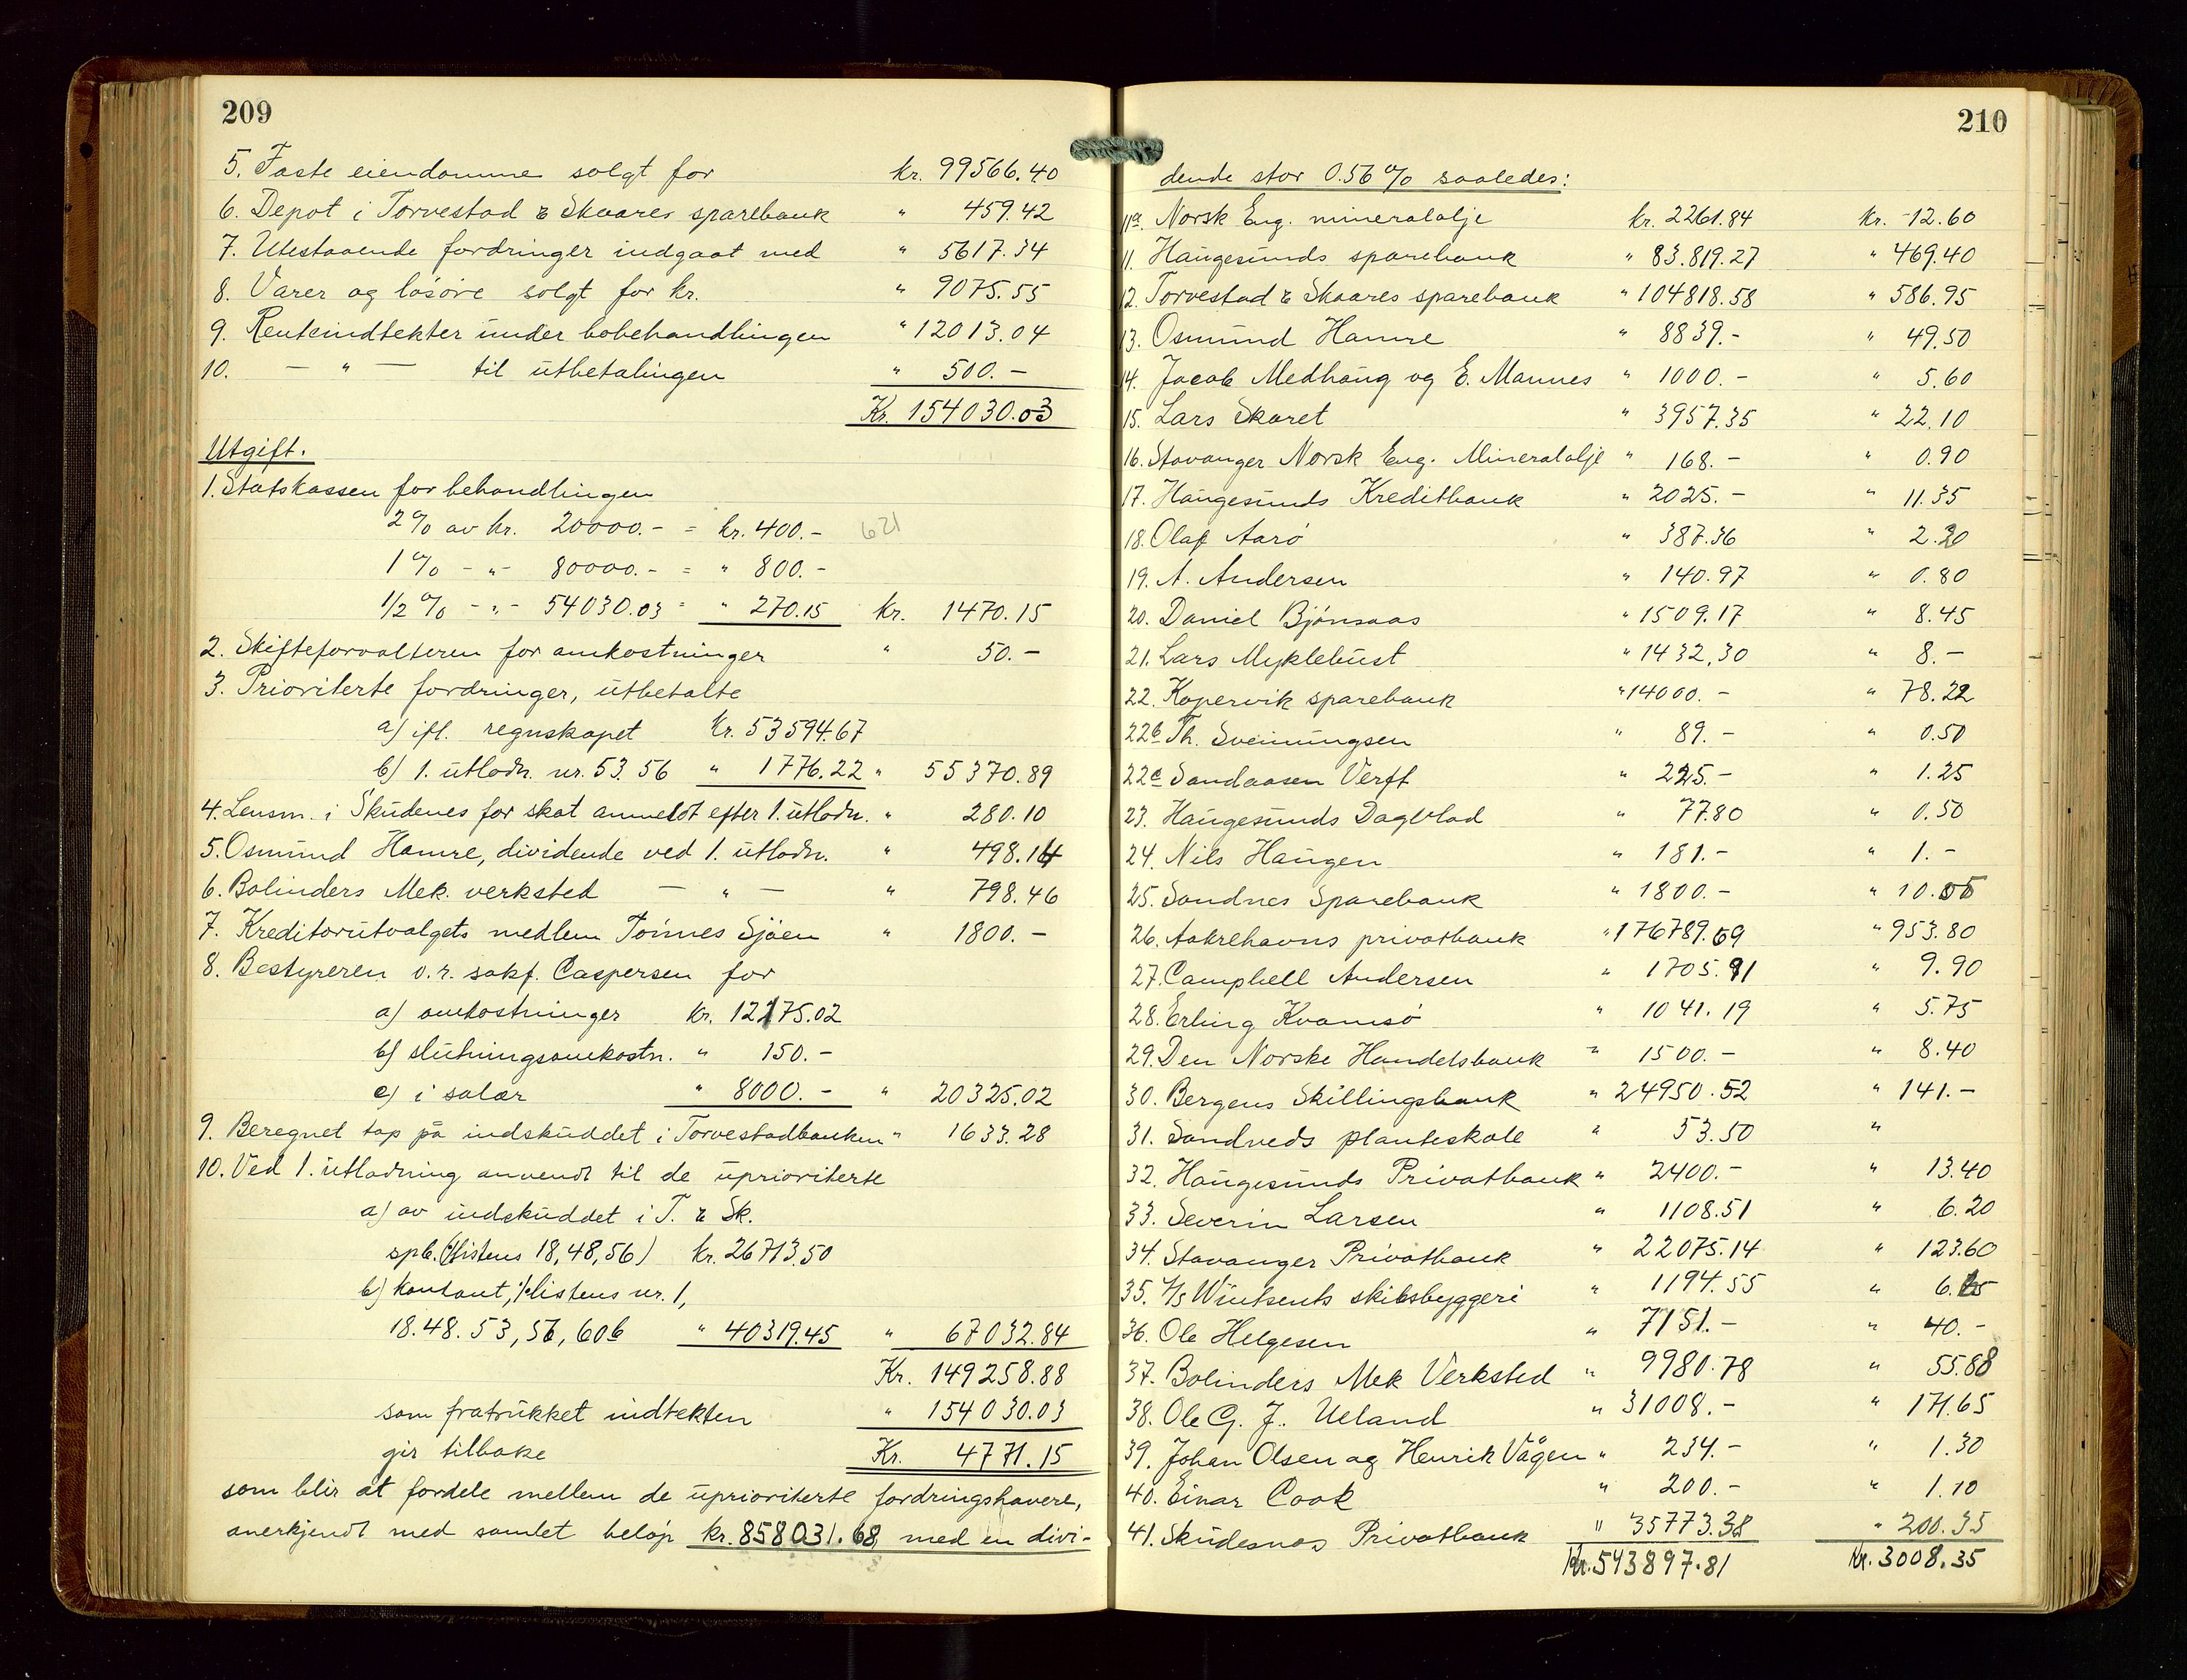 209
5. Faste eiendomme solgt for kr. 99566.40
6. Depot i Torvestad & Skaares sparebank " 459.42
7. Utestaaende fordringer indgaat med " 5617.34
8. Varer og løsøre solgt for kr. " 9075.55
9. Renteindtekter under bobehandlingen " 12013.04
10. — " — til utbetalingen " 500.-
Kr. 154030.03
Utgift.
1. Statskassen for behandlingen
2% av kr. 20000.- = kr. 400.- 621
1% - " - 80000.- = " 800.-
1/2% - " - 54030.03 = " 270.15 kr. 1470.15
2. Skifteforvalteren for omkostninger " 50.-
3. Prioriterte fordringer, utbetalte
a) ifl. regnskapet kr. 53594.67
b) 1. utlodn. nr. 53. 56 " 1776.22 " 55370.89
4. Lensm. i Skudenes for skat anmeldt efter 1. utlodn. " 280.10
5. Osmund Hamre, dividende ved 1. utlodn. " 498.14
6. Bolinders Mek. verksted — " — " 798.46
7. Kreditorutvalgets medlem Tønnes Sjøen " 1800.-
8. Bestyreren o.r. sakf. Caspersen for
a) omkostninger kr. 12175.02
b) slutningsomkostn. " 150.-
c) i salær " 8000.- " 20325.02
9. Beregnet tap på indskuddet i Torvestadbanken " 1633.28
10. Ved 1. utlodning anvendt til de uprioriterte
a) av indskuddet i T. & Sk.
spb. (listens 18, 48, 56) kr. 26713.50
b) kontant, listens nr. 1,
18. 48. 53, 56, 60b " 40319.45 " 67032.84
Kr. 149258.88
som fratrukket indtekten " 154030.03
gir tilbake Kr. 4771.15
som blir at fordele mellem de uprioriterte fordringshavere,
anerkjendt med samlet beløp kr. 858031.68 med en divi-
210
dende stor 0.56% saaledes:
11a. Norsk Eng. mineralolje kr. 2261.84 kr. 12.60
11. Haugesunds sparebank " 83.819.27 " 469.40
12. Torvestad & Skaares sparebank " 104818.58 " 586.95
13. Osmund Hamre " 8839.- " 49.50
14. Jacob Medhaug og E. Mannes " 1000.- " 5.60
15. Lars Skaret " 3957.35 " 22.10
16. Stavanger Norsk Eng. Mineralolje " 168.- " 0.90
17. Haugesunds Kreditbank " 2025.- " 11.35
18. Olaf Aarø " 387.36 " 2.20
19. A. Andersen " 140.97 " 0.80
20. Daniel Bjønsaas " 1509.17 " 8.45
21. Lars Myklebust " 1432,30 " 8.-
22. Kopervik sparebank " 14000.- " 78.22
22b Th. Sveinungsen " 89.- " 0.50
22c Sandaasen Verft " 225.- " 1.25
23. Haugesunds Dagblad " 77.80 " 0.50
24. Nils Haugen " 181.- " 1.-
25. Sandnes Sparebank " 1800.- " 10.05
26. Aakrehavns privatbank " 176789.69 " 953.80
27. Campbell Andersen " 1705.91 " 9.90
28. Erling Kvamsø " 1041.19 " 5.75
29. Den Norske Handelsbank " 1500.- " 8.40
30. Bergens Skillingsbank " 24950.52 " 141.-
31. Sandveds planteskole " 53.50 "
32. Haugesunds Privatbank " 2400.- " 13.40
33. Severin Larsen " 1108.51 " 6.20
34. Stavanger Privatbank " 22075.14 " 123.60
35. A/S Wintsents skibsbyggeri " 1194.55 "
36. Ole Helgesen " 7151.- " 40.-
37. Bolinders Mek Verksted " 9980.78 " 55.88
38. Ole G. J. Ueland " 31008.- " 171.65
39. Johan Olsen og Henrik Vågen " 234.- " 1.30
40. Einar Cook " 200.- " 1.10
41. Skudesnæs Privatbank " 35773.38 " 200.35
Kr. 543897.81 Kr. 3008.35